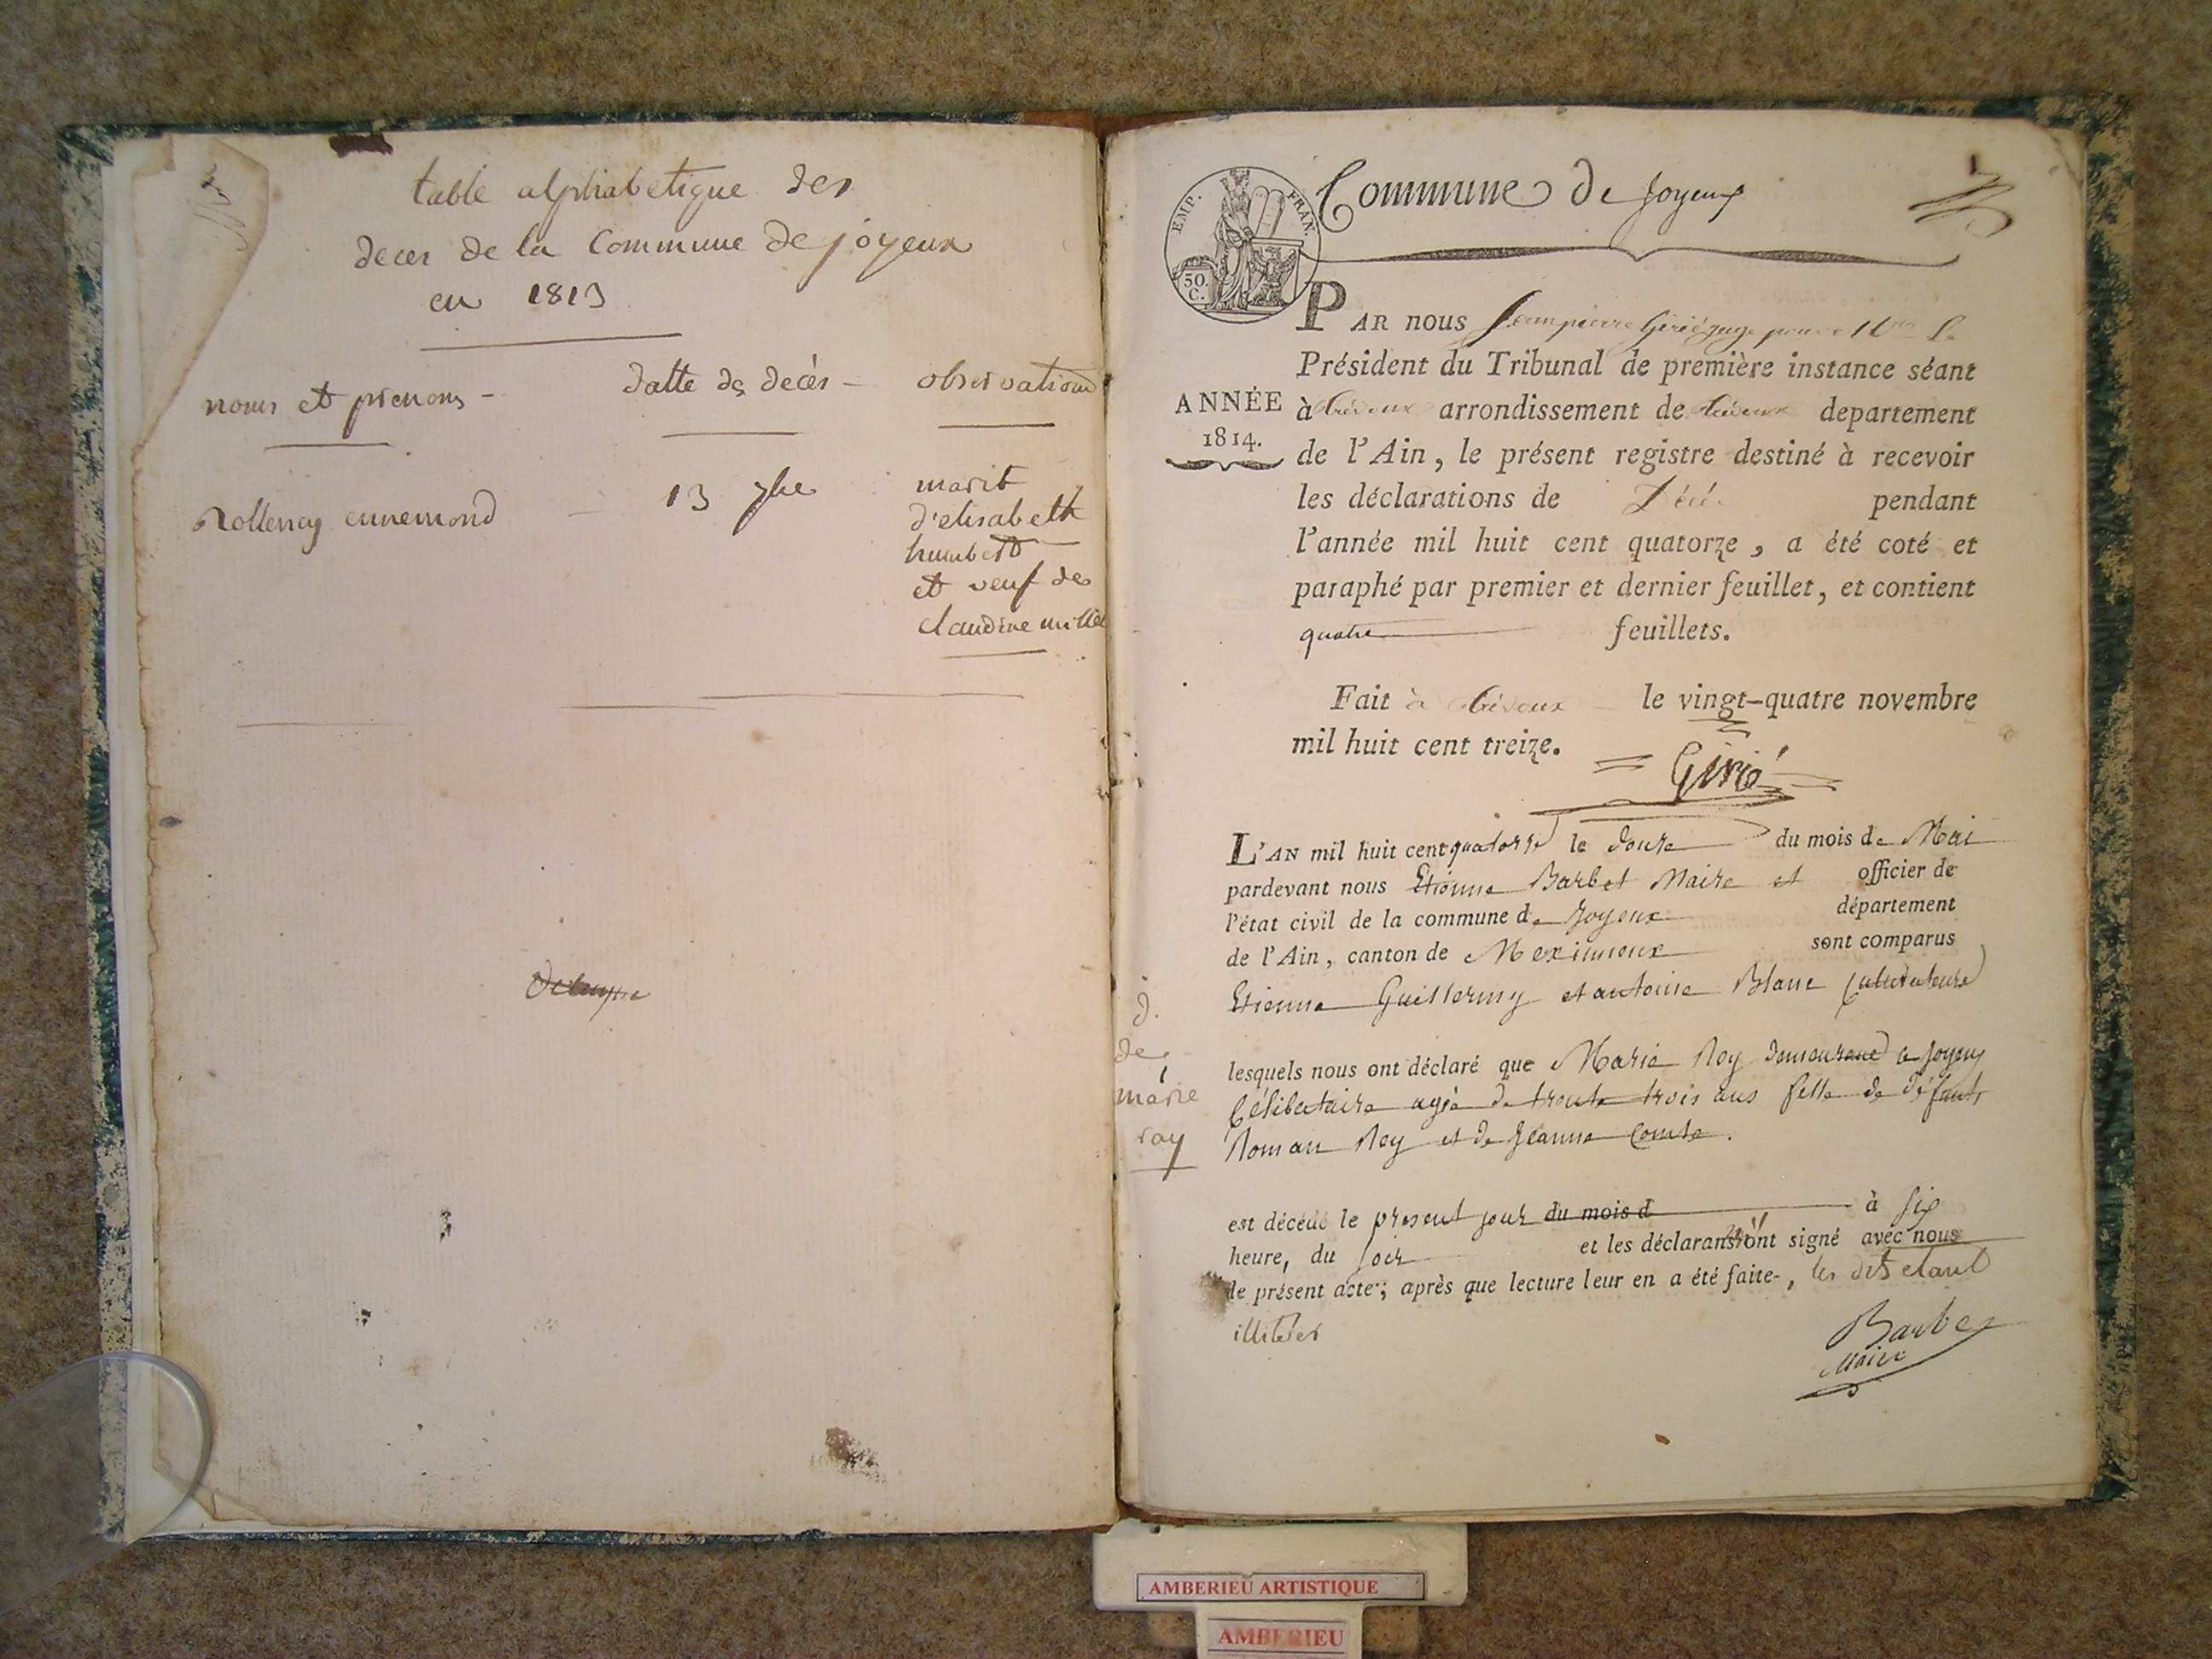 table alphabetique des
deces de la Commune de joyeux
en 1813
noms et prenoms -
datte de decès -
observations
Rollency ennemond
13 7bre
marit
d'elisabeth
humbert
et veuf de
claudine millet
Commune de Joyeux
EMP. FRAN.
50. C.
ANNÉE
1814.
PAR nous Jeanpierre Girié juge pour Mr le
Président du Tribunal de première instance séant
à trévoux arrondissement de trévoux departement
de l'Ain, le présent registre destiné à recevoir
les déclarations de Décès pendant
l'année mil huit cent quatorze, a été coté et
paraphé par premier et dernier feuillet, et contient
quatre feuillets.
Fait à trévoux le vingt-quatre novembre
mil huit cent treize.
Girié
L'AN mil huit cent quatorze le douze du mois de Mai
pardevant nous Etienne Barbet Maire et officier de
l'état civil de la commune de Joyeux département
de l'Ain, canton de Meximieux sont comparus
Etienne Guillermy et antoine Blanc Cultivateurs
d.
de
marie
roy
lesquels nous ont déclaré que Marie Roy demeurant a Joyeux
Célibataire agée de trente trois ans fille de défunt
Roman Roy et de Jeanne Comte.
est décédé le present jour du mois d à six
heure, du soir et les déclarans n'ont signé avec nous
le présent acte; après que lecture leur en a été faite, les dits etant
illitérés
Barbet
Maire
AMBERIEU ARTISTIQUE
AMBERIEU